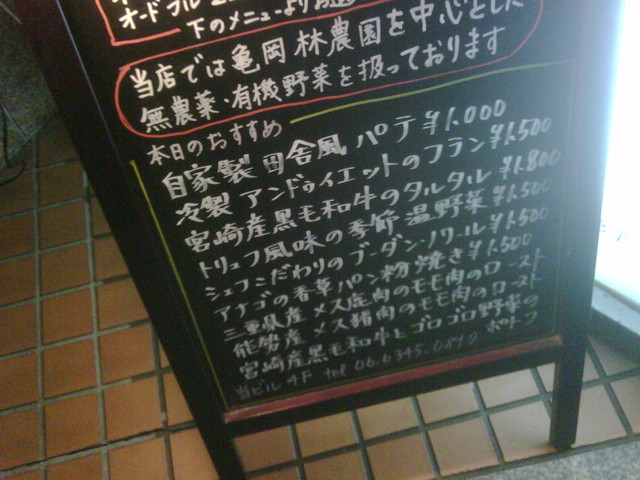 オードブル
下のメニューより
当店では亀岡 林農園を中心とした
無農薬・有機野菜を扱っております
本日のおすすめ
自家製 田舎風 パテ ¥1.000
冷製 アンドゥイエットのフラン ¥1.500
宮崎産黒毛和牛のタルタル ¥1.800
トリュフ風味の季節温野菜 ¥1.500
シェフこだわりのブーダン・ノワール ¥1.500
アナゴの香草パン粉焼き ¥1.500
三重県産 メス鹿肉のモモ肉のロースト
能勢産 メス猪肉のモモ肉のロースト
宮崎産黒毛和牛とゴロゴロ野菜の
ポトフ
当ビル4F tel 06.6345.